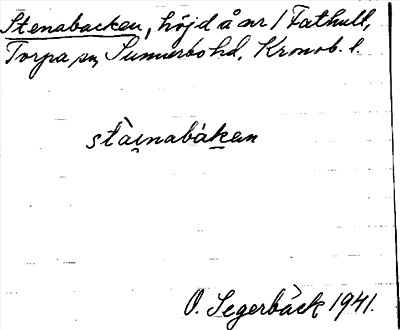 Stenabacken, höjd å nr 1 Fathult,
Torpa sn, Sunnerbo hd, Kronob. l.
stàinabákan
O. Segerbäck 1941.